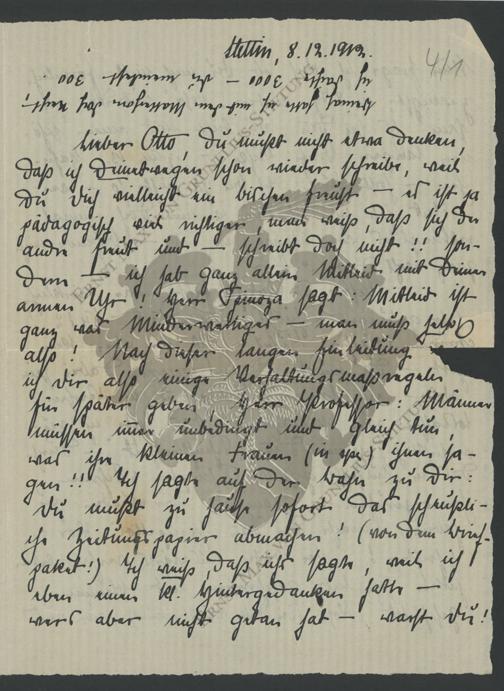 Stettin, 8.12.1912.
4/1
Lieber Otto, du mußt nicht etwa denken,
daß ich Deinetwegen schon wieder schreibe, weil
Du Dich vielleicht ein bischen freust – es ist ja
pädagogisch viel richtiger, man weiß, daß sich der
andre freut und – schreibt doch nicht!! son-
dern – ich hab ganz allein Mitleid mit Deinen
armen Uhr! Herr Spinoza sagt: Mitleid ist
ganz was Minderwertiges – man muß helfen
also! Nach dieser langen Einleidung
ich dir also einige Verhaltungsmaßregeln
für später geben, Herr Professor: Männer
müssen immer unbedingt und gleich tun,
was ihre kleinen Frauen (in spe) ihnen sa-
gen!! Ich sagte auf der Bahn zu Dir:
Du mußt zu Hause sofort das scheußli-
che Zeitungspapier abmachen! (von dem
paket!) Ich weiß, daß ichs sagte, weil ich
eben einen kl. Hintergedanken hatte –
wers aber nicht getan hat – warst du!